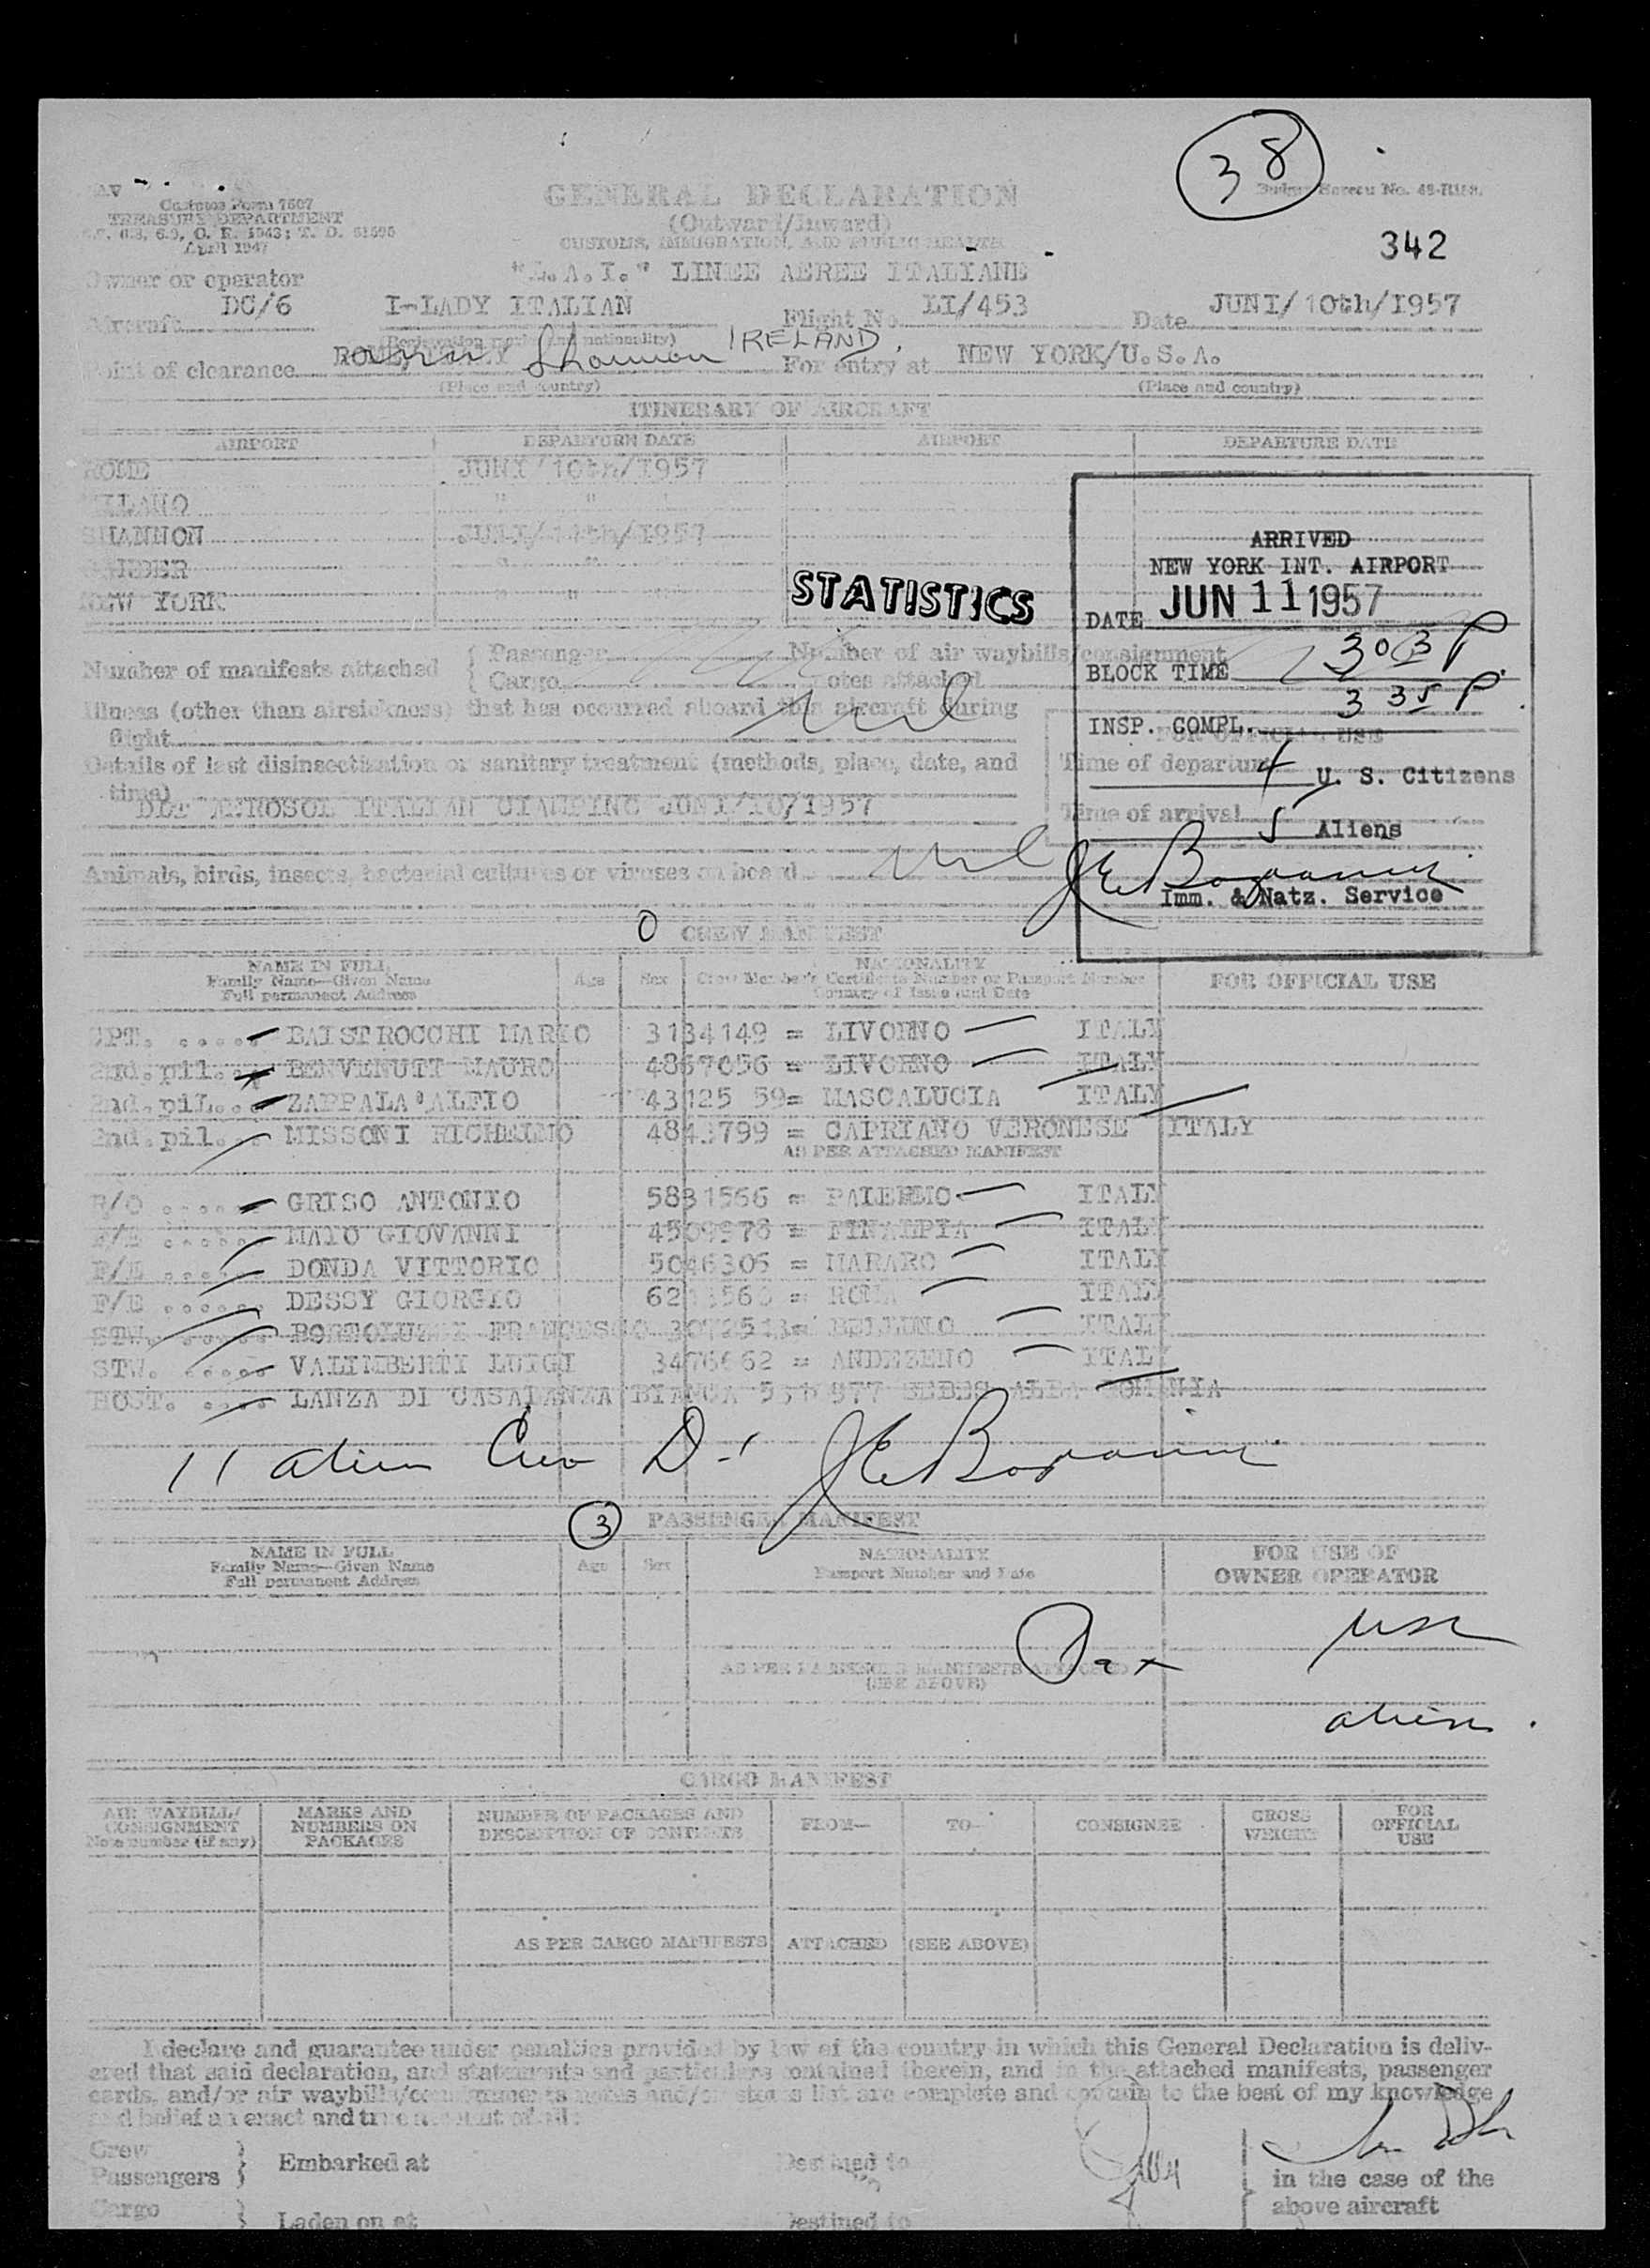 38
Budget Bureau No. 48-R
Customs Form 7507
TREASURY DEPARTMENT
April 1947
GENERAL DECLARATION
(Outward/Inward)
CUSTOMS, IMMIGRATION, AND PUBLIC HEALTH
342
Owner or operator "L.A.I." LINEE AEREE ITALIANE
Aircraft DC/6 I-LADY ITALIAN Flight No. LI/453 Date JUNI/10th/1957
(Registration marks and nationality)
Point of clearance Shannon IRELAND. For entry at NEW YORK/U.S.A.
(Place and country) (Place and country)
ITINERARY OF AIRCRAFT
AIRPORT DEPARTURE DATE AIRPORT DEPARTURE DATE
ROME JUNI/10th/1957
MILANO " "
SHANNON JUNI/11th/1957
" "
NEW YORK " "
STATISTICS
ARRIVED
NEW YORK INT. AIRPORT
DATE JUN 11 1957
BLOCK TIME 303P
335P
INSP. COMPL.
4 U. S. Citizens
5 Aliens
Imm. & Natz. Service
Number of manifests attached { Passenger Number of air waybills/consignment
Cargo notes attached
Illness (other than airsickness) that has occurred aboard this aircraft during
flight nil
FOR OFFICIAL USE
Details of last disinsectization or sanitary treatment (methods, place, date, and
time)
DDT AEROSOL ITALIAN CIAMPINO JUNI/10/1957
Time of departure
Time of arrival
Animals, birds, insects, bacterial cultures or viruses on board nil
0 CREW MANIFEST
NAME IN FULL
Family Name—Given Name
Full permanent Address
Age Sex
NATIONALITY
Crew Member's Certificate Number or Passport Number
Country of Issue and Date
FOR OFFICIAL USE
CPT. ..... BAISTROCCHI MARIO 3134149 = LIVORNO ITALY
2nd.pil. BENVENUTI MAURO 4867056 = LIVORNO ITALY
2nd.pil... ZAPPALA'ALFIO 43125 59= MASCALUCIA ITALY
2nd.pil.. MISSONI RICHEINO 4843799 = CAPRIANO VERONESE ITALY
AS PER ATTACHED MANIFEST
R/O ..... GRISO ANTONIO 5831566 = PALERMO ITALY
F/E ..... MAIO GIOVANNI = ITALY
F/E ...... DONDA VITTORIO 5046305 = ITALY
F/E ...... DESSY GIORGIO = ROMA ITALY
STW. ...... BORTOLUZZI FRANCESCO = BELLUNO ITALY
STW. ..... VALIMBERTI LUIGI 3476662 = ANDEZENO ITALY
HOST. .... LANZA DI CASALANZA BIANCA
11 alien Crew
3 PASSENGER MANIFEST
NAME IN FULL
Family Name—Given Name
Full permanent Address
Age Sex
NATIONALITY
Passport Number and Date
FOR USE OF
OWNER OPERATOR
Pax
AS PER PASSENGER MANIFESTS ATTACHED
(SEE ABOVE)
usc
alien
CARGO MANIFEST
AIR WAYBILL/
CONSIGNMENT
Note number (if any)
MARKS AND
NUMBERS ON
PACKAGES
NUMBER OF PACKAGES AND
DESCRIPTION OF CONTENTS
FROM—
TO—
CONSIGNEE
GROSS
WEIGHT
FOR
OFFICIAL
USE
AS PER CARGO MANIFESTS ATTACHED (SEE ABOVE)
I declare and guarantee under penalties provided by law of the country in which this General Declaration is deliv-
ered that said declaration, and statements and particulars contained therein, and in the attached manifests, passenger
cards, and/or air waybills/consignments notes and/or stores list are complete and contain to the best of my knowledge
and belief an exact and true account of all:
Crew
Passengers } Embarked at Destined to
in the case of the
above aircraft
Cargo } Laden on at Destined to